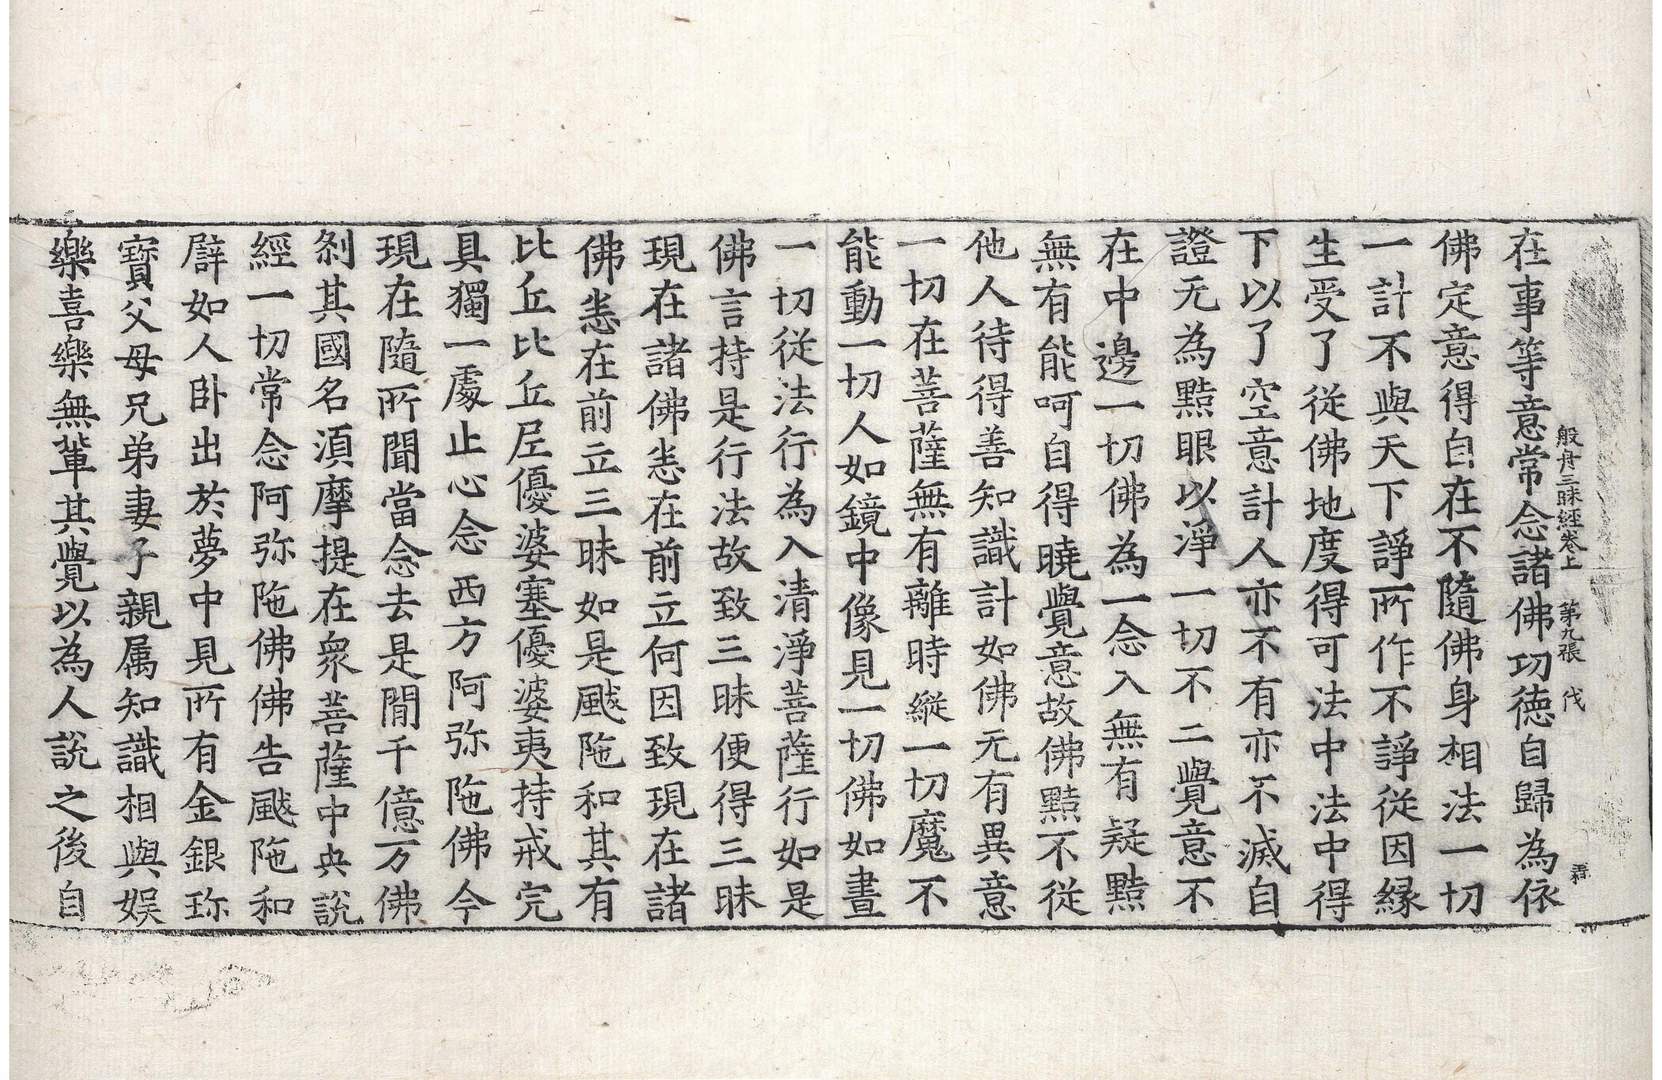 般舟三昧經卷上　第九張　伐
在事等意常念諸佛功徳自歸為依
佛定意得自在不隨佛身相法一切
一計不與天下諍所作不諍從因縁
生受了從佛地度得可法中法中得
下以了空意計人亦不有亦不滅自
證无為黠眼以淨一切不二覺意不
在中邊一切佛為一念入無有疑黠
無有能呵自得曉覺意故佛黠不從
他人待得善知識計如佛无有異意
一切在菩薩無有離時縱一切魔不
能動一切人如鏡中像見一切佛如畫
一切從法行為入清淨菩薩行如是
佛言持是行法故致三昧便得三昧
現在諸佛悉在前立何因致現在諸
佛悉在前立三昧如是颰陁和其有
比丘比丘尼優婆塞優婆夷持戒完
具獨一處止心念西方阿弥陁佛今
現在隨所聞當念去是閒千億万佛
刹其國名湏摩提在衆菩薩中央說
經一切常念阿弥陁佛佛告颰陁和
譬如人卧出於夢中見所有金銀珎
寶父母兄弟妻子親属知識相與娯
樂喜樂無輩其覺以為人說之後自